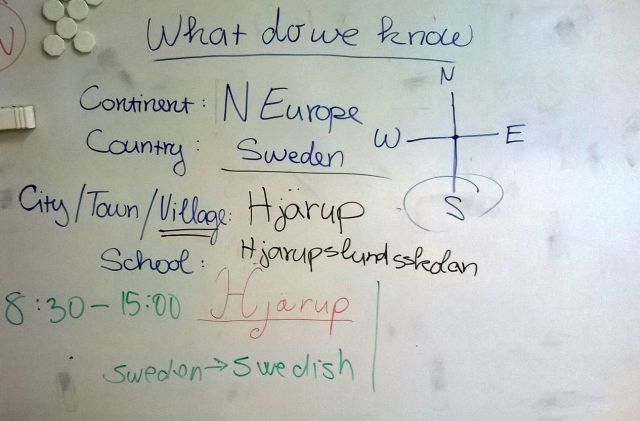 What do we know
N
Continent: N Europe
W E
Country: Sweden
S
City/Town/Village: Hjärup
School: Hjarupslundsskolan
8:30-15:00 Hjärup
sweden→swedish